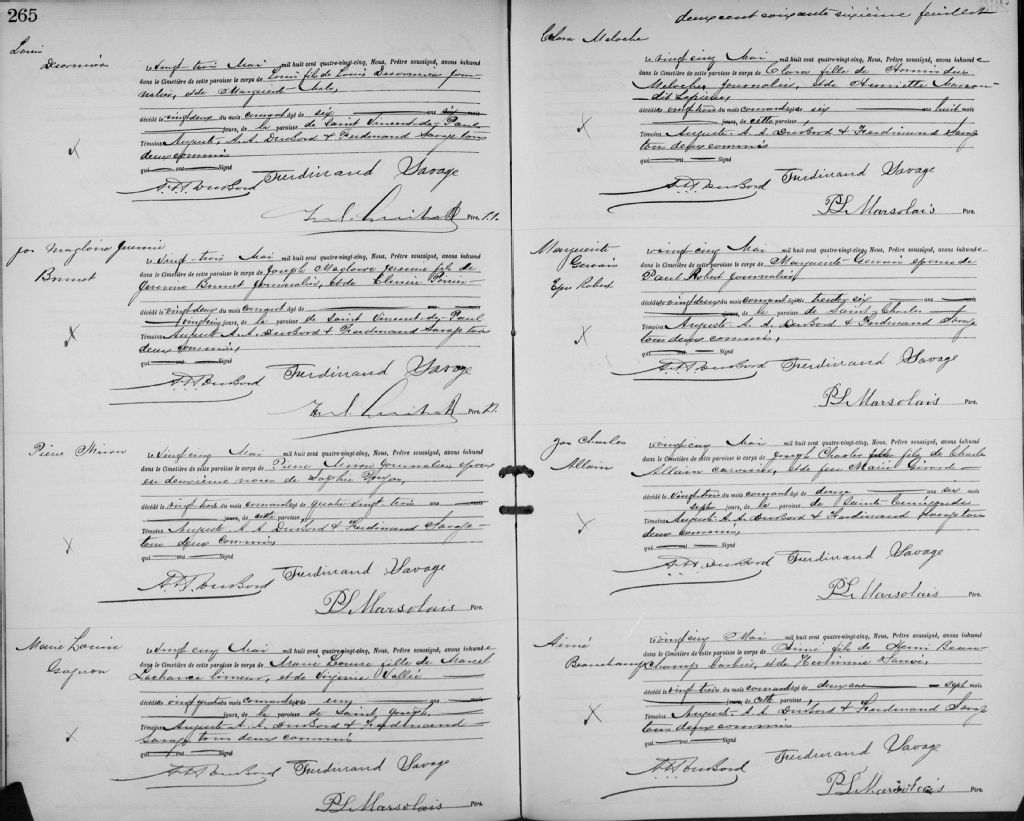 265
Louis
Le Vingt-trois Mai mil huit cent quatre-vingt-cinq, Nous, Prêtre soussigné, avons inhumé
dans le Cimetière de cette paroisse le corps de Louis fils de Louis
et de
décédé le vingt deux du mois courant âgé de six ans six mois
jours, de la paroisse de Saint Vincent de Paul
Témoins Auguste, A. A. DuBord & Ferdinand Savage tous
deux commis
qui ont Signé
A. A. DuBord Ferdinand Savage
Ptre.
Jos Magloire Jeremie
Bonnet
Le Vingt-trois Mai mil huit cent quatre-vingt-cinq, Nous, Prêtre soussigné, avons inhumé
dans le Cimetière de cette paroisse le corps de Joseph Magloire Jeremie fils de
Jeremie Bonnet Journalier, et de
décédé le vingt deux du mois courant âgé de ans mois
jours, de la paroisse de Saint Vincent de Paul
Témoins Auguste A. A. DuBord & Ferdinand Savage tous
deux commis,
qui ont Signé
A. A. DuBord Ferdinand Savage
Ptre.
Pierre Miron
Le Vingt cinq Mai mil huit cent quatre-vingt-cinq, Nous, Prêtre soussigné, avons inhumé
dans le Cimetière de cette paroisse le corps de Pierre Miron journalier époux
en deuxième noces de Sophie
décédé le vingt trois du mois courant âgé de quatre vingt trois ans
jours, de cette paroisse
Témoins Auguste A. A. DuBord & Ferdinand Savage
tous deux commis
qui ont Signé
A. A. DuBord Ferdinand Savage
P L Marsolais Ptre.
Marie Louise
Gagnon
Le Vingt cinq Mai mil huit cent quatre-vingt-cinq, Nous, Prêtre soussigné, avons inhumé
dans le Cimetière de cette paroisse le corps de Marie Louise fille de Marcel
Lachance et de Vallée
décédée du mois courant âgé de cinq
jours, de la paroisse de Saint Joseph
Témoins Auguste A. A. DuBord & Ferdinand
Savage tous deux commis
qui ont Signé
A. A. DuBord Ferdinand Savage
P L Marsolais Ptre.
deux cent soixante sixième feuillet
Clara Meloche
Le vingt cinq Mai mil huit cent quatre-vingt-cinq, Nous, Prêtre soussigné, avons inhumée
dans le Cimetière de cette paroisse le corps de Clara fille de
Meloche, Journalier, et de Henriette
dit
décédé le vingt trois du mois courant âgé de six ans huit mois
jours, de cette paroisse,
Témoins Auguste A. A. DuBord & Ferdinand Savage
tous deux commis
qui ont Signé
A. A. DuBord Ferdinand Savage
P L Marsolais Ptre.
Marguerite
Gervais
Epse Robert
Le vingt cinq Mai mil huit cent quatre-vingt-cinq, Nous, Prêtre soussigné, avons inhumée
dans le Cimetière de cette paroisse le corps de Marguerite Gervais épouse de
Paul Robert Journalier
décédée le vingt deux du mois courant âgée de trente six ans mois
jours, de la paroisse de Saint Charles
Témoins Auguste A. A. DuBord & Ferdinand Savage
tous deux commis,
qui ont Signé
A. A. DuBord Ferdinand Savage
P L Marsolais Ptre.
Jos Charles
Allain
Le vingt cinq Mai mil huit cent quatre-vingt-cinq, Nous, Prêtre soussigné, avons inhumé
dans le Cimetière de cette paroisse le corps de Joseph Charles fils de Charles
Allain et de feu Marie Girard
décédé le vingt trois du mois courant âgé de deux ans six
sept jours, de la paroisse de Sainte Cunégonde
Témoins Auguste A. A. DuBord & Ferdinand Savage tous
deux commis
qui ont Signé
A. A. DuBord Ferdinand Savage
P L Marsolais Ptre.
Aimé
Beauchamp
Le vingt cinq Mai mil huit cent quatre-vingt-cinq, Nous, Prêtre soussigné, avons inhumé
dans le Cimetière de cette paroisse le corps de Aimé fils de Henri Beau-
champ barbier, et de Sauvé,
décédé le vingt trois du mois courant âgé de deux ans sept mois
jours, de cette paroisse,
Témoins Auguste A. A. DuBord & Ferdinand Savage
tous deux commis
qui ont Signé
A. A. DuBord Ferdinand Savage
P L Marsolais Ptre.